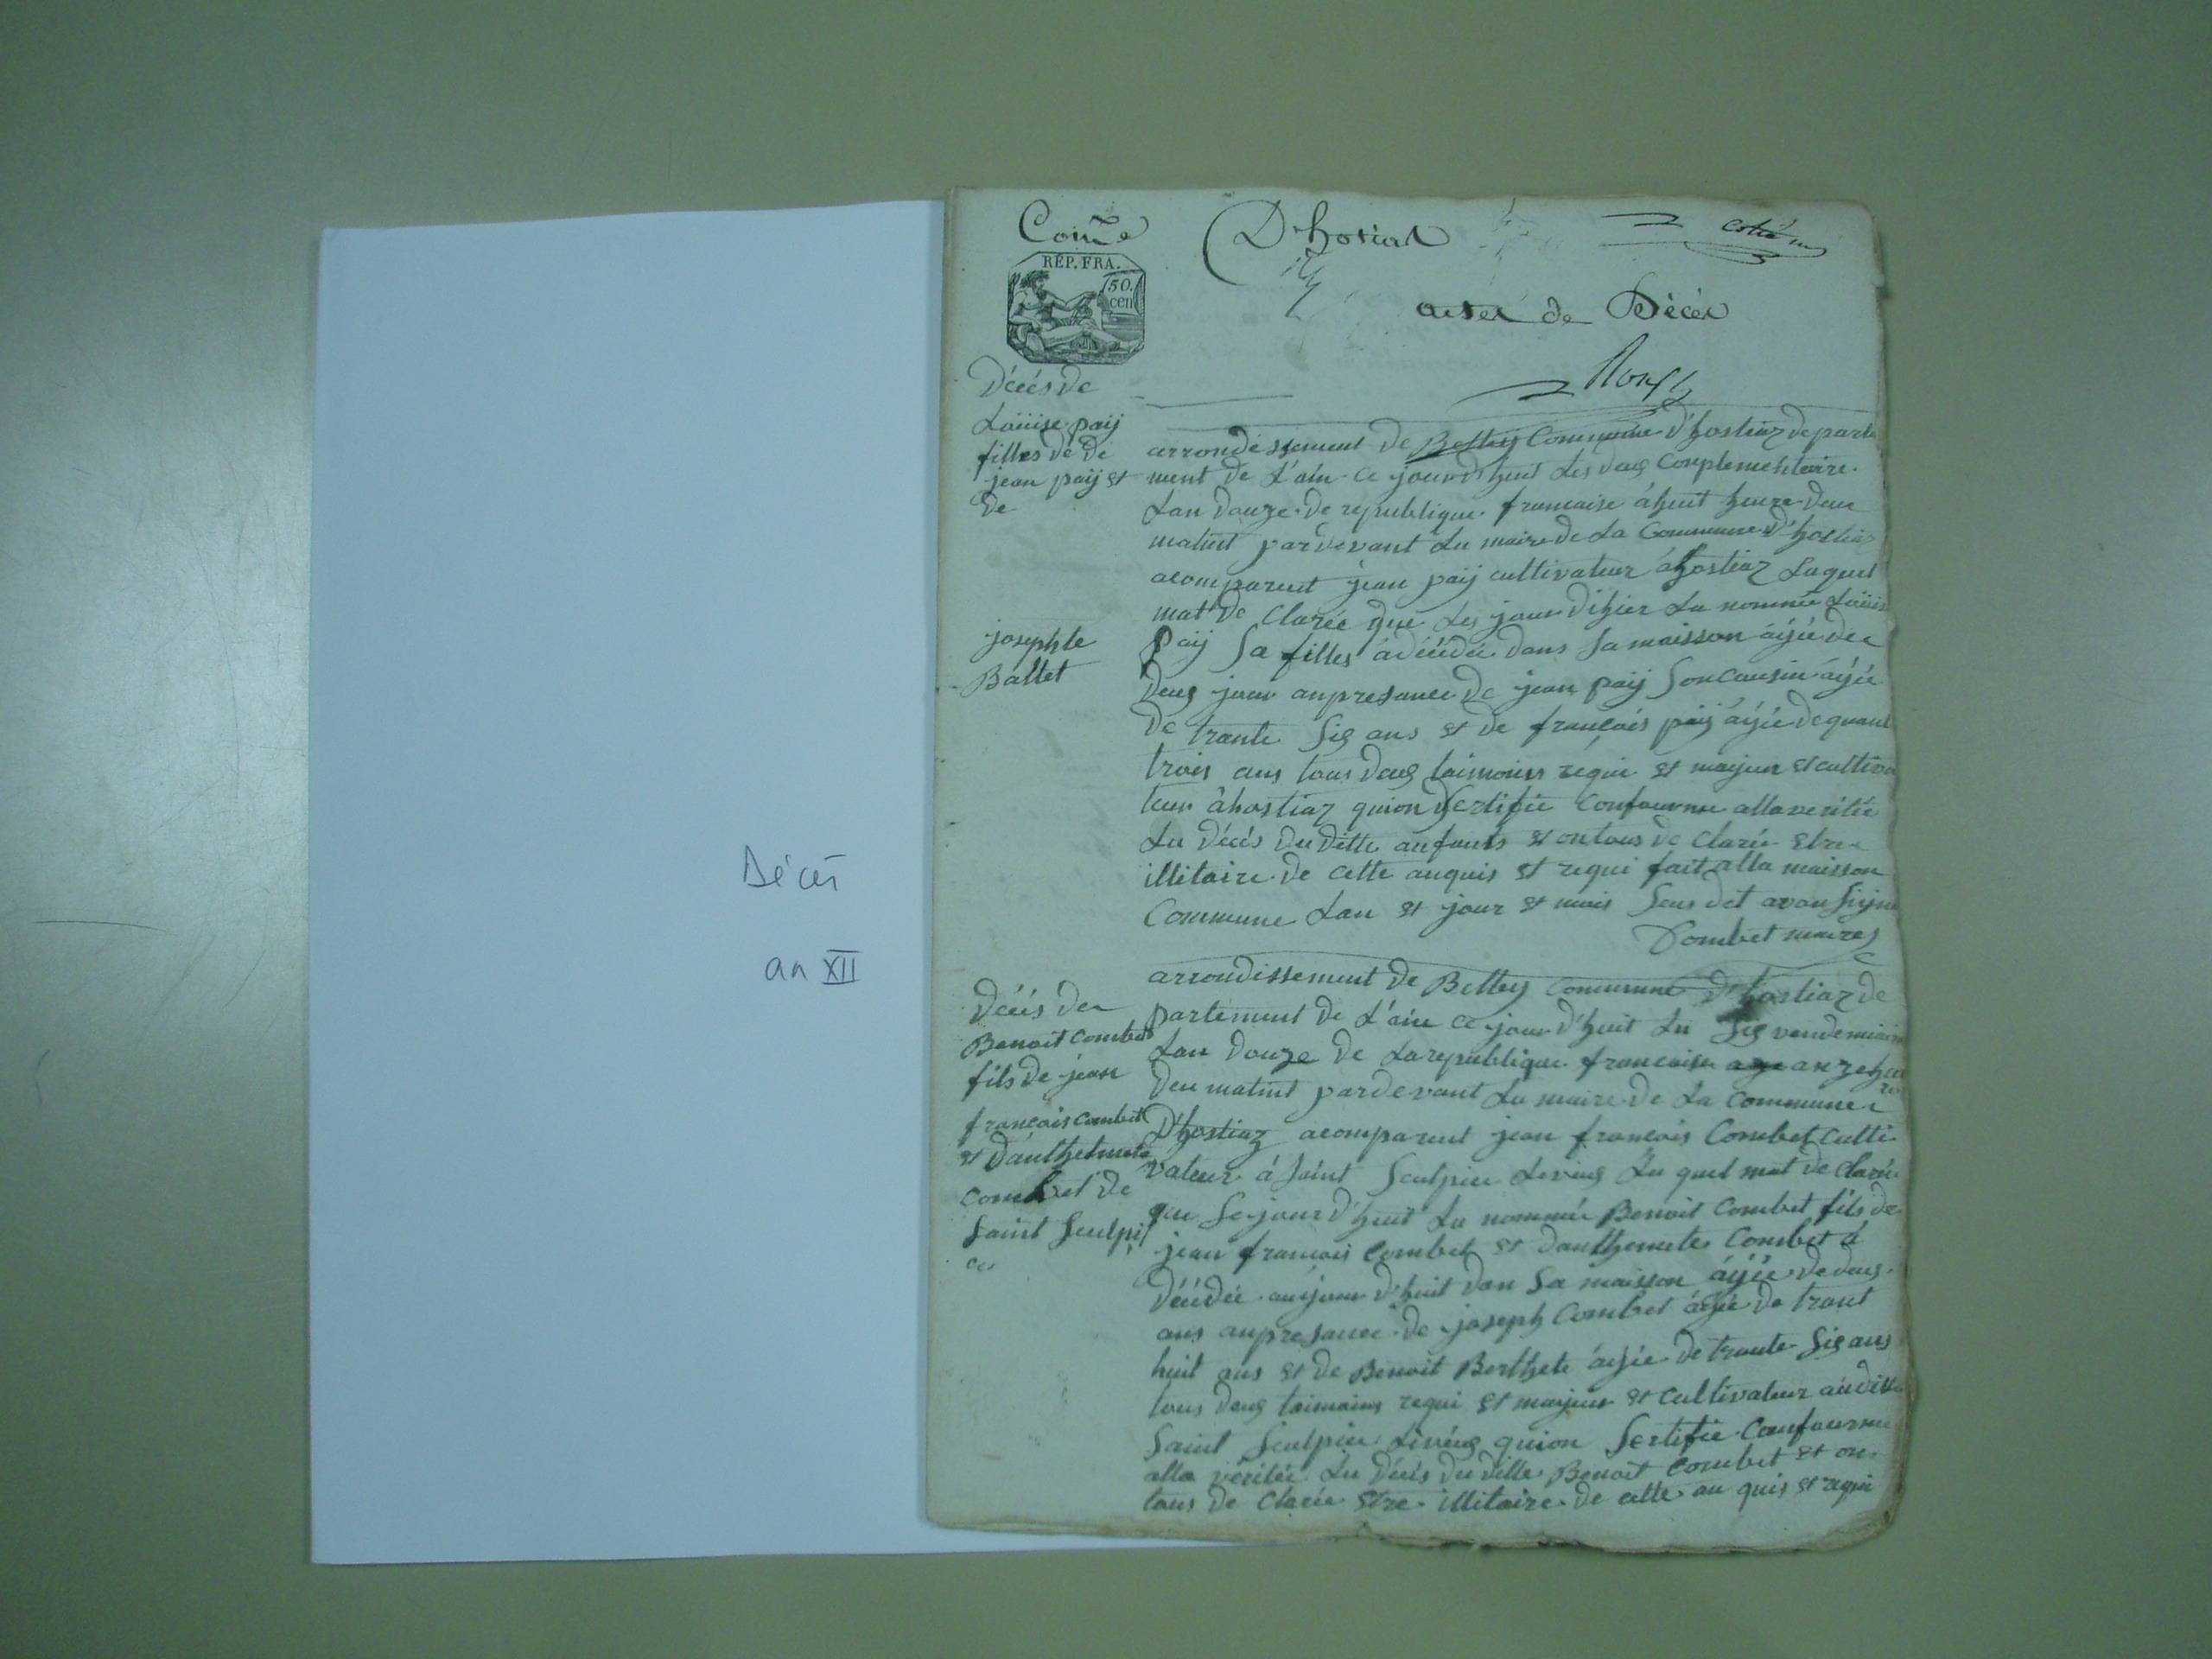 Décès
an XII
Coñe D'hosiat
RÉP. FRA.
50.
cen
actes de Décès
Décés de
Loüise paÿ
filles dé De
jean paÿ et
De
josephte
Ballet
arrondessement de Belley Commune d'hostiaz departe
ment de L'ain ce jourd'huit Les deug Conplementaire
Lan douze de republique francaise áhuit heure deu
matint pardevant Lu maire de La Commune d'hostiaz
acomparut jean paÿ cultivateur áhostiaz Laquel
mat de Clarée que Les jour d'ihier La nommée Loüise
Paÿ Sa filles á décédée dans Sa maisson áÿée de
deug jour anpresance de jean paÿ Son Cousin áÿée
de trante Sig ans et de françois paÿ áÿée de quant
trois ans tous deug taimoins requi et majeur et cultiva
teur áhostiaz quion Sertifie Confourme alla veritée
Lu Décés du ditte anfants et on tous de Clarée etre
illitaire de cette anquis et requi fait alla maisson
Commune Lan et jour et mois Sus dit avon Signe
Combet maire
Décés de
Benoit Combet
fils de jean
francois Combet
et d'anthelmete
Combet de
Saint Sculpi
ce
arrondissement de Belley Commune d'hostiaz de
partement de L'ain ce jour d'huit Lu Sig vendemiaire
Lan douze de La republique francaise anzeheu
re
deu matint pardevant Lu maire de La Commune
D'hostiaz acomparut jean francois Combet Culti
vateur á Saint Sculpice Levieug Lu quel mat de Clarée
que Se jour d'huit Lu nommée Benoit Combet fils de
jean francois Combet et d'anthemete Combet á
décédée aujour d'huit dan Sa maisson áÿée de deug
ans anpresance de joseph Combet áÿée de trant
huit ans et de Benoit Berthete áÿée de trante Sig ans
tous deug taimoins requi et majeur et Cultivateur auditte
Saint Sculpice Levieug quion Sertifie Confourme
alla véritée Lu Décés du ditte Benoit Combet et on
tous de Clarée etre illitaire de cette an quis et requi